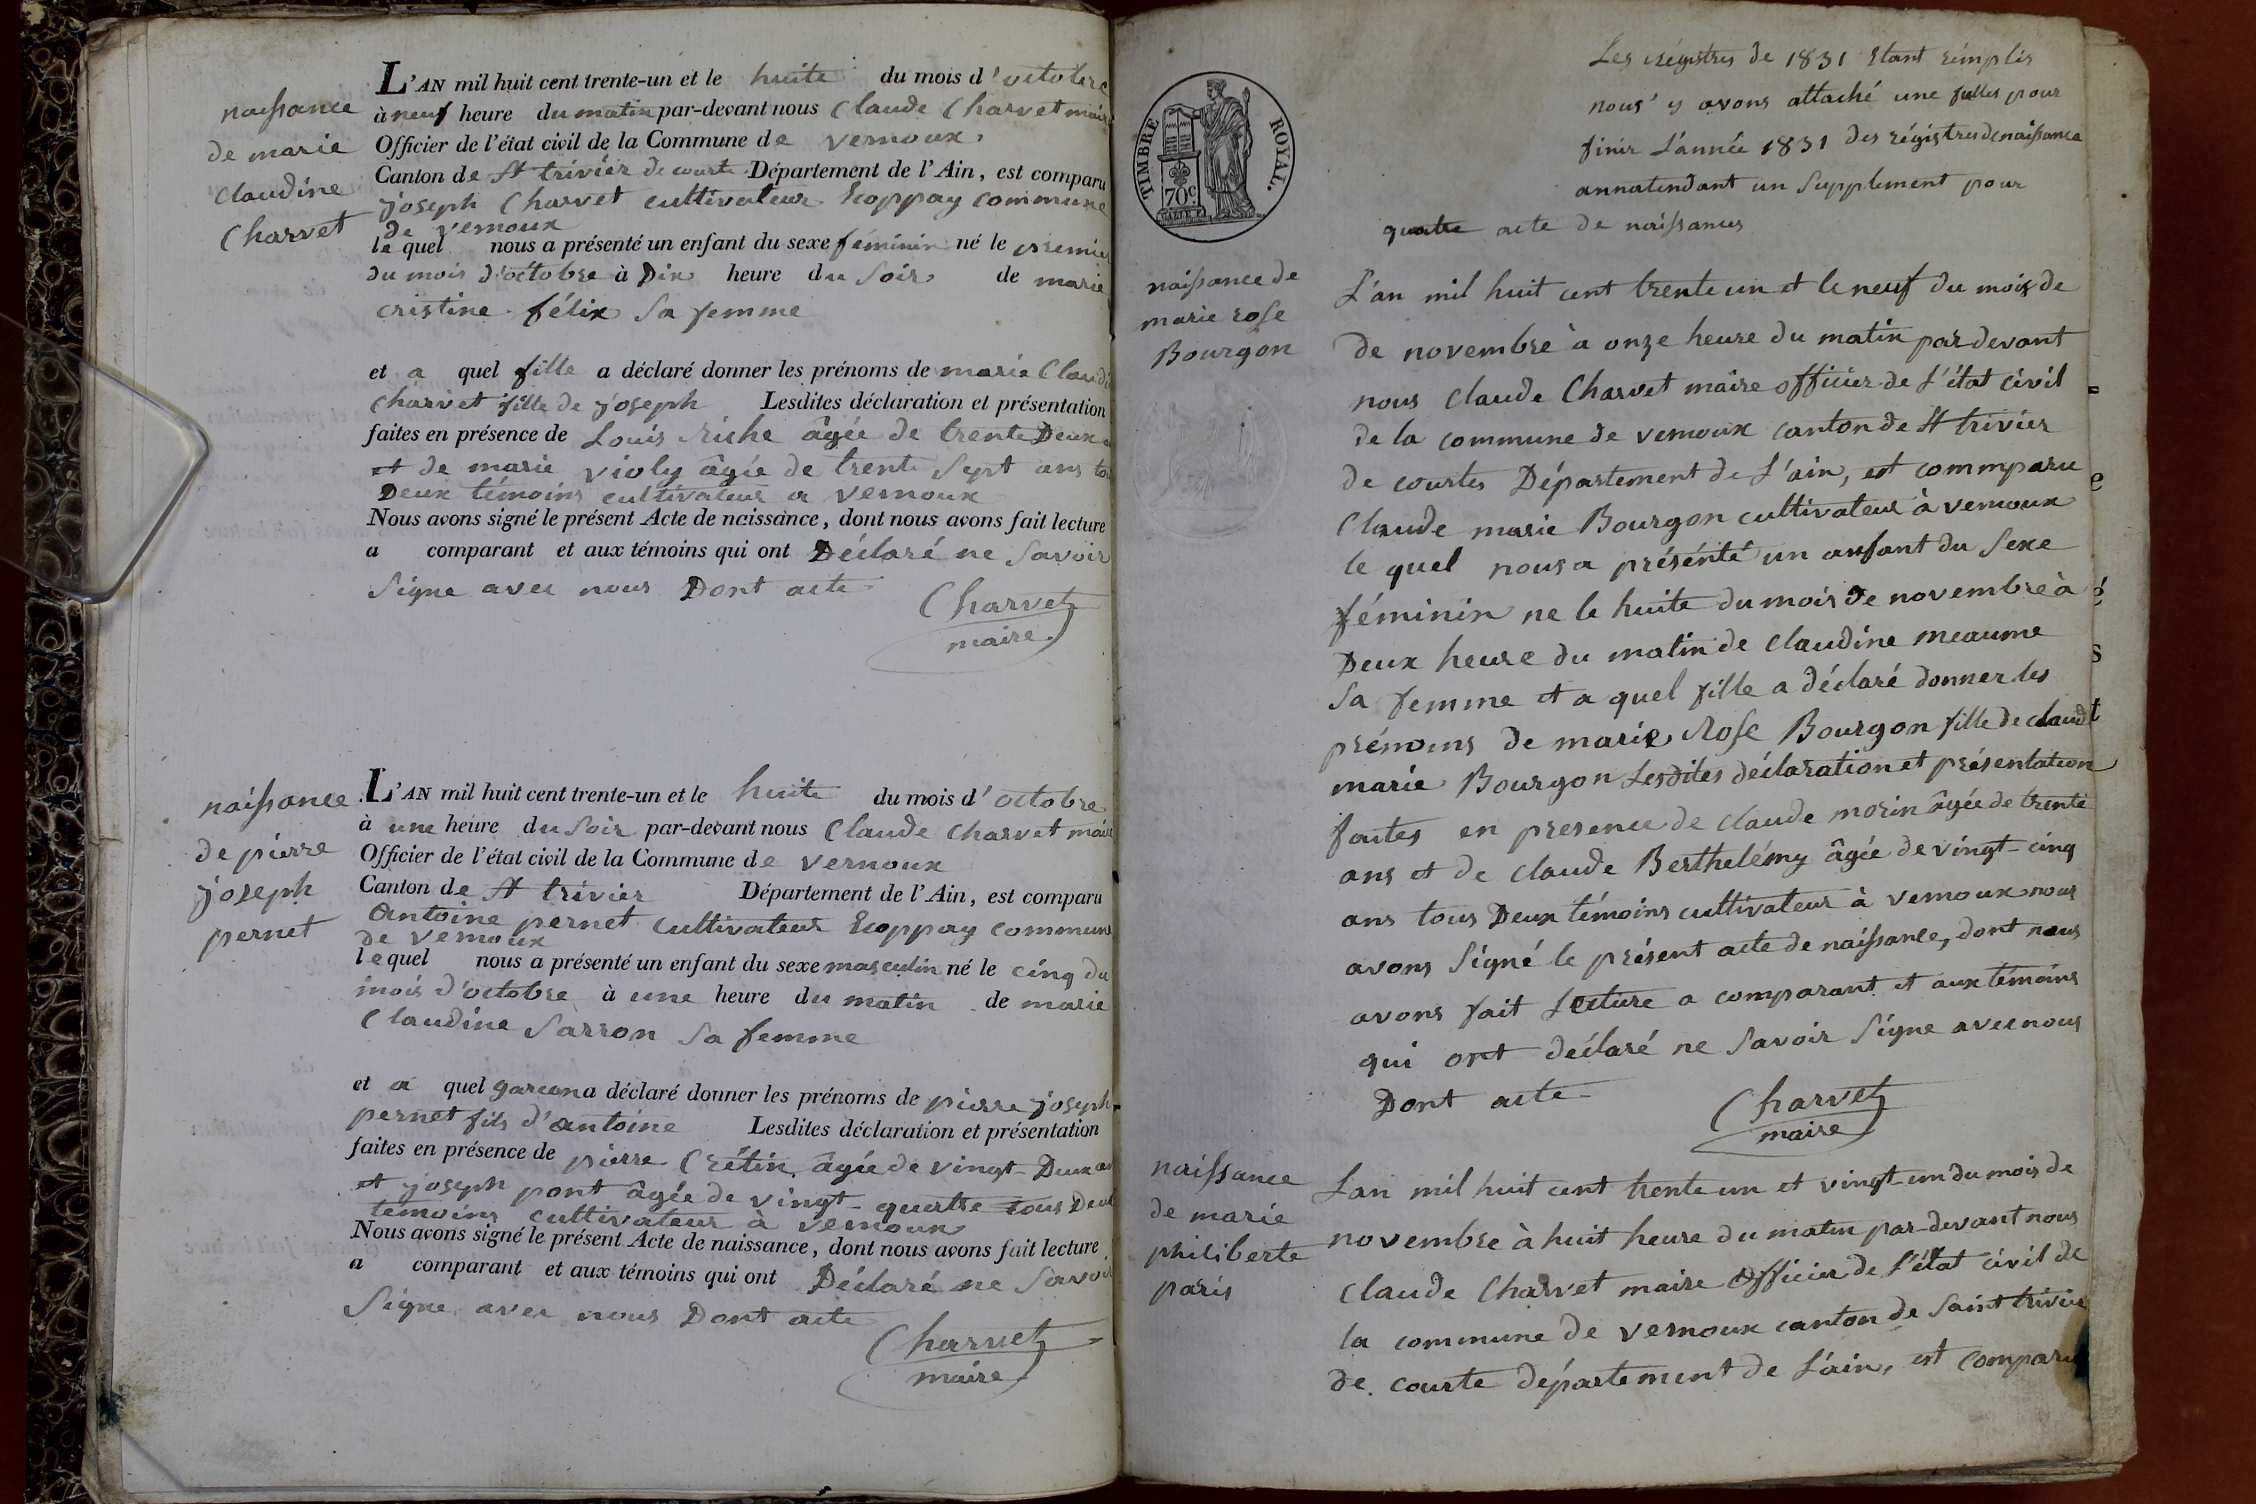 naissance
de marie
claudine
Charvet
L'AN mil huit cent trente-un et le huite du mois d'octobre
à neuf heure du matin par-devant nous Claude Charvet maire
Officier de l'état civil de la Commune de vernoux
Canton de St trivier de courte Département de l'Ain, est comparu
joseph Charvet cultivateur Ecoppay commune
de vernoux
le quel nous a présenté un enfant du sexe féminin né le premier
du mois d'octobre à Dix heure du soir de marie
cristine félix sa femme
et a quel fille a déclaré donner les prénoms de marie Claudi
Charvet fille de joseph Lesdites déclaration et présentation
faites en présence de Louis riche âgée de trente Deux
et de marie violy âgée de trente sept ans
Deux témoins cultivateur a vernoux
Nous avons signé le présent Acte de naissance, dont nous avons fait lecture
a comparant et aux témoins qui ont Déclaré ne savoir
signe avec nous Dont acte
Charvet
maire
naissance
de pierre
joseph
pernet
L'AN mil huit cent trente-un et le huite du mois d'octobre
à une heure du soir par-devant nous Claude Charvet maire
Officier de l'état civil de la Commune de vernoux
Canton de St trivier Département de l'Ain, est comparu
Antoine pernet cultivateur Ecoppay commune
de vernoux
lequel nous a présenté un enfant du sexe masculin né le cinq du
mois d'octobre à une heure du matin de marie
Claudine Sarron sa femme
et a quel garcon a déclaré donner les prénoms de pierre joseph
pernet fils d'antoine Lesdites déclaration et présentation
faites en présence de pierre Crétin âgée de vingt-Deux an
et joseph pont âgée de vingt-quatre tous Deux
temoins cultivateur à vernoux
Nous avons signé le présent Acte de naissance, dont nous avons fait lecture
a comparant et aux témoins qui ont Déclaré ne savoir
signe avec nous Dont acte
Charvet
maire
TIMBRE ROYAL.
70c
Les régistres de 1831 étant rémplis
nous y avons attaché une fulles pour
finir L'année 1831 des régistres de naissance
annatendant un supplement pour
quatre acte de naissances
naissance de
marie rose
Bourgon
L'an mil huit cent trente un et le neuf du mois de
de novembre à onze heure du matin par devant
nous claude Charvet maire officier de L'état civil
de la commune de vernoux canton de St trivier
de courtes Département de L'ain, est commparu
Claude marie Bourgon cultivateur à vernoux
le quel nous a présénté un anfant du sexe
féminin ne le huite du mois de novembre à
Deux heure du matin de claudine meaume
sa femme et a quel fille a déclaré donner les
prénoms de marie Rose Bourgon fille de claude
marie Bourgon Lesdites déclaration et présentation
faites en presence de claude morin âgée de trente
ans et de claude Berthelémy âgée de vingt-cinq
ans tous Deux témoins cultivateur à vernoux nous
avons signé le présent acte de naissance, dont nous
avons fait Lecture a comparant et aux témoins
qui ont déclaré ne savoir signe avec nous
Dont acte
Charvet
maire
naissance
de marie
philiberte
paris
Lan mil huit cent trente un et vingt-un du mois de
novembre à huit heure du matin par-devant nous
claude Charvet maire officier de l'état civil de
la commune de vernoux canton de saint trivier
de courte département de L'ain, est comparu